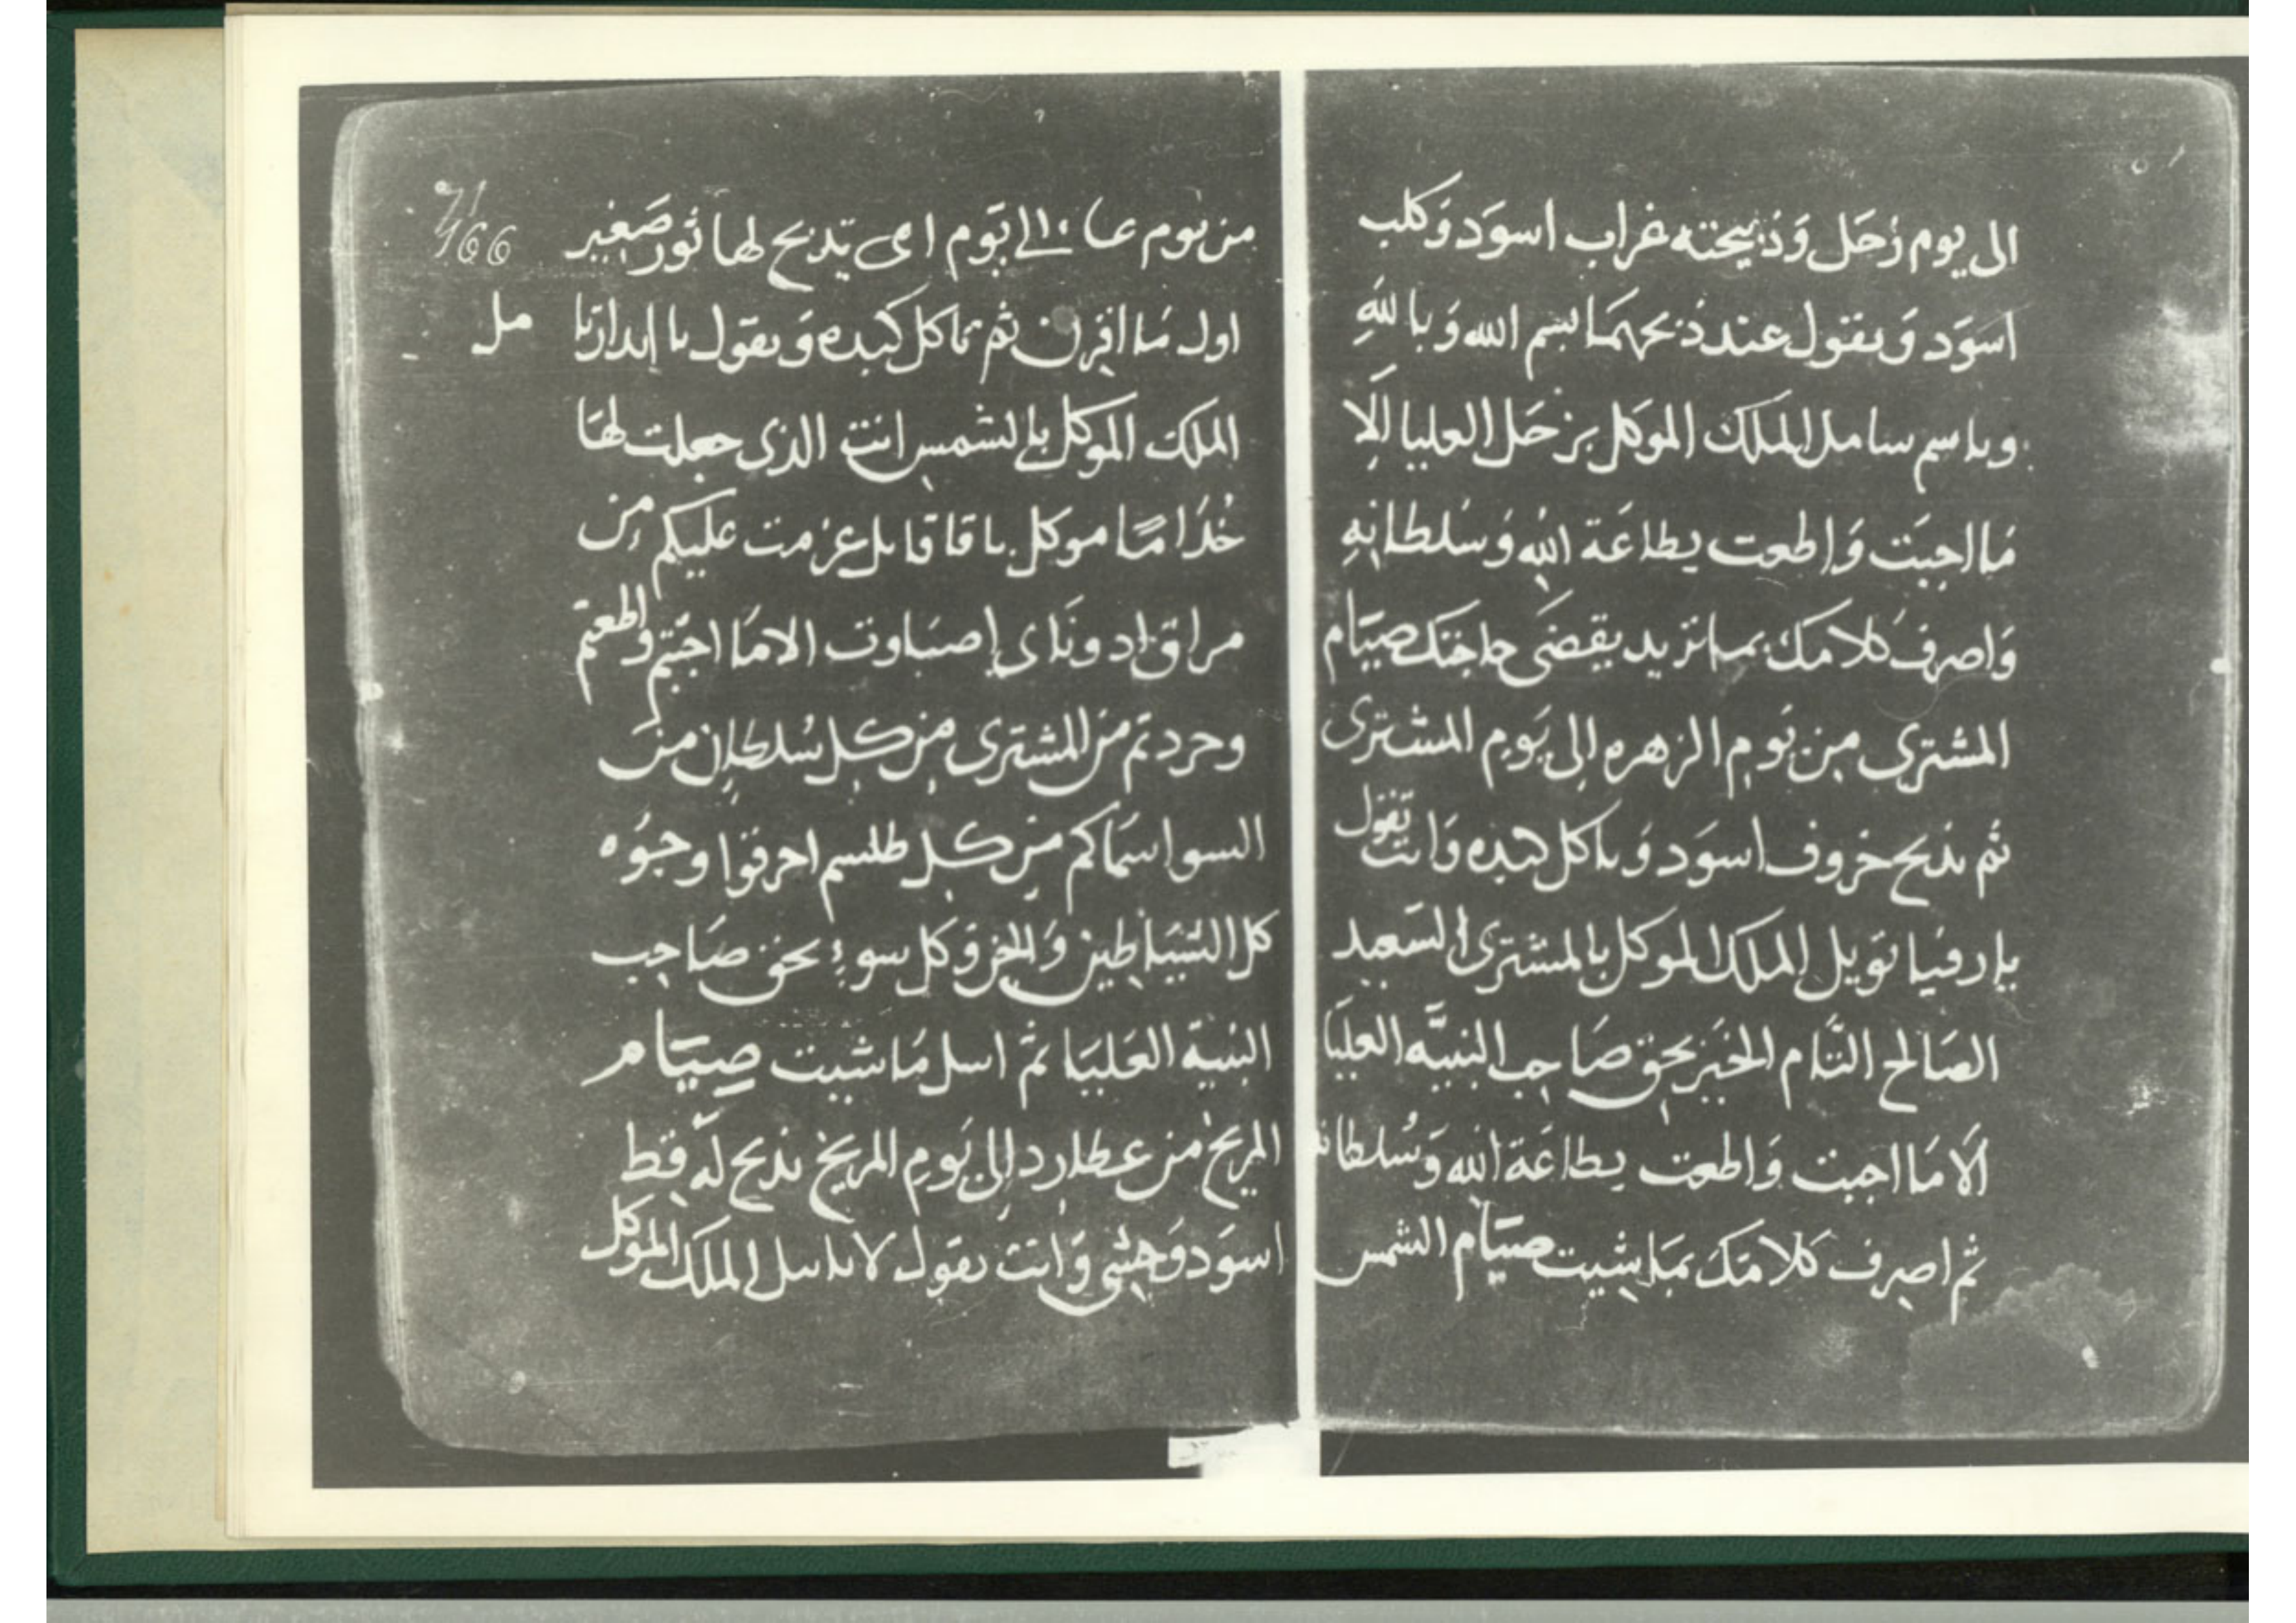 الى يوم زحل وذبيحته غراب اسود وكلب
اسود ويقول عند ذبحهما بسم الله وبالله
وباسم سامل الملك الموكل بزحل العليا الا
ما اجبت واطعت بطاعة الله وسلطانه
واصرف كلامك بما تريد يقضى حاجتك صيام
المشترى من يوم الزهره الى يوم المشترى
ثم يذبح خروف اسود وياكل كبده وانت تقول
يا رفيا تويل الملك الموكل بالمشترى السعيد
الصالح التام الخير بحق صاحب البنيه العليا
الا ما اجبت واطعت بطاعة الله وسلطانه
ثم اصرف كلامك بما شيت صيام الشمس
71
166
من يوم الى يوم تذبح لها ثور صغير
اول ما اقرن ثم تاكل كبده ويقول يا
مل
الملك الموكل بالشمس انت الذى جعلت لها
خداما موكل عزمت عليكم من
الا ما اجبتم واطعتم
وحردتم من المشترى من كل سلطان من
السوا اسماكم من كل طلسم احرقوا وجوه
كل الشياطين وكل سوء بحق صاحب
البنية العليا ثم اسل ما شيت صيام
المريخ من عطارد الى يوم المريخ تذبح له قط
اسود وحشى وانت يقول الملك الموكل